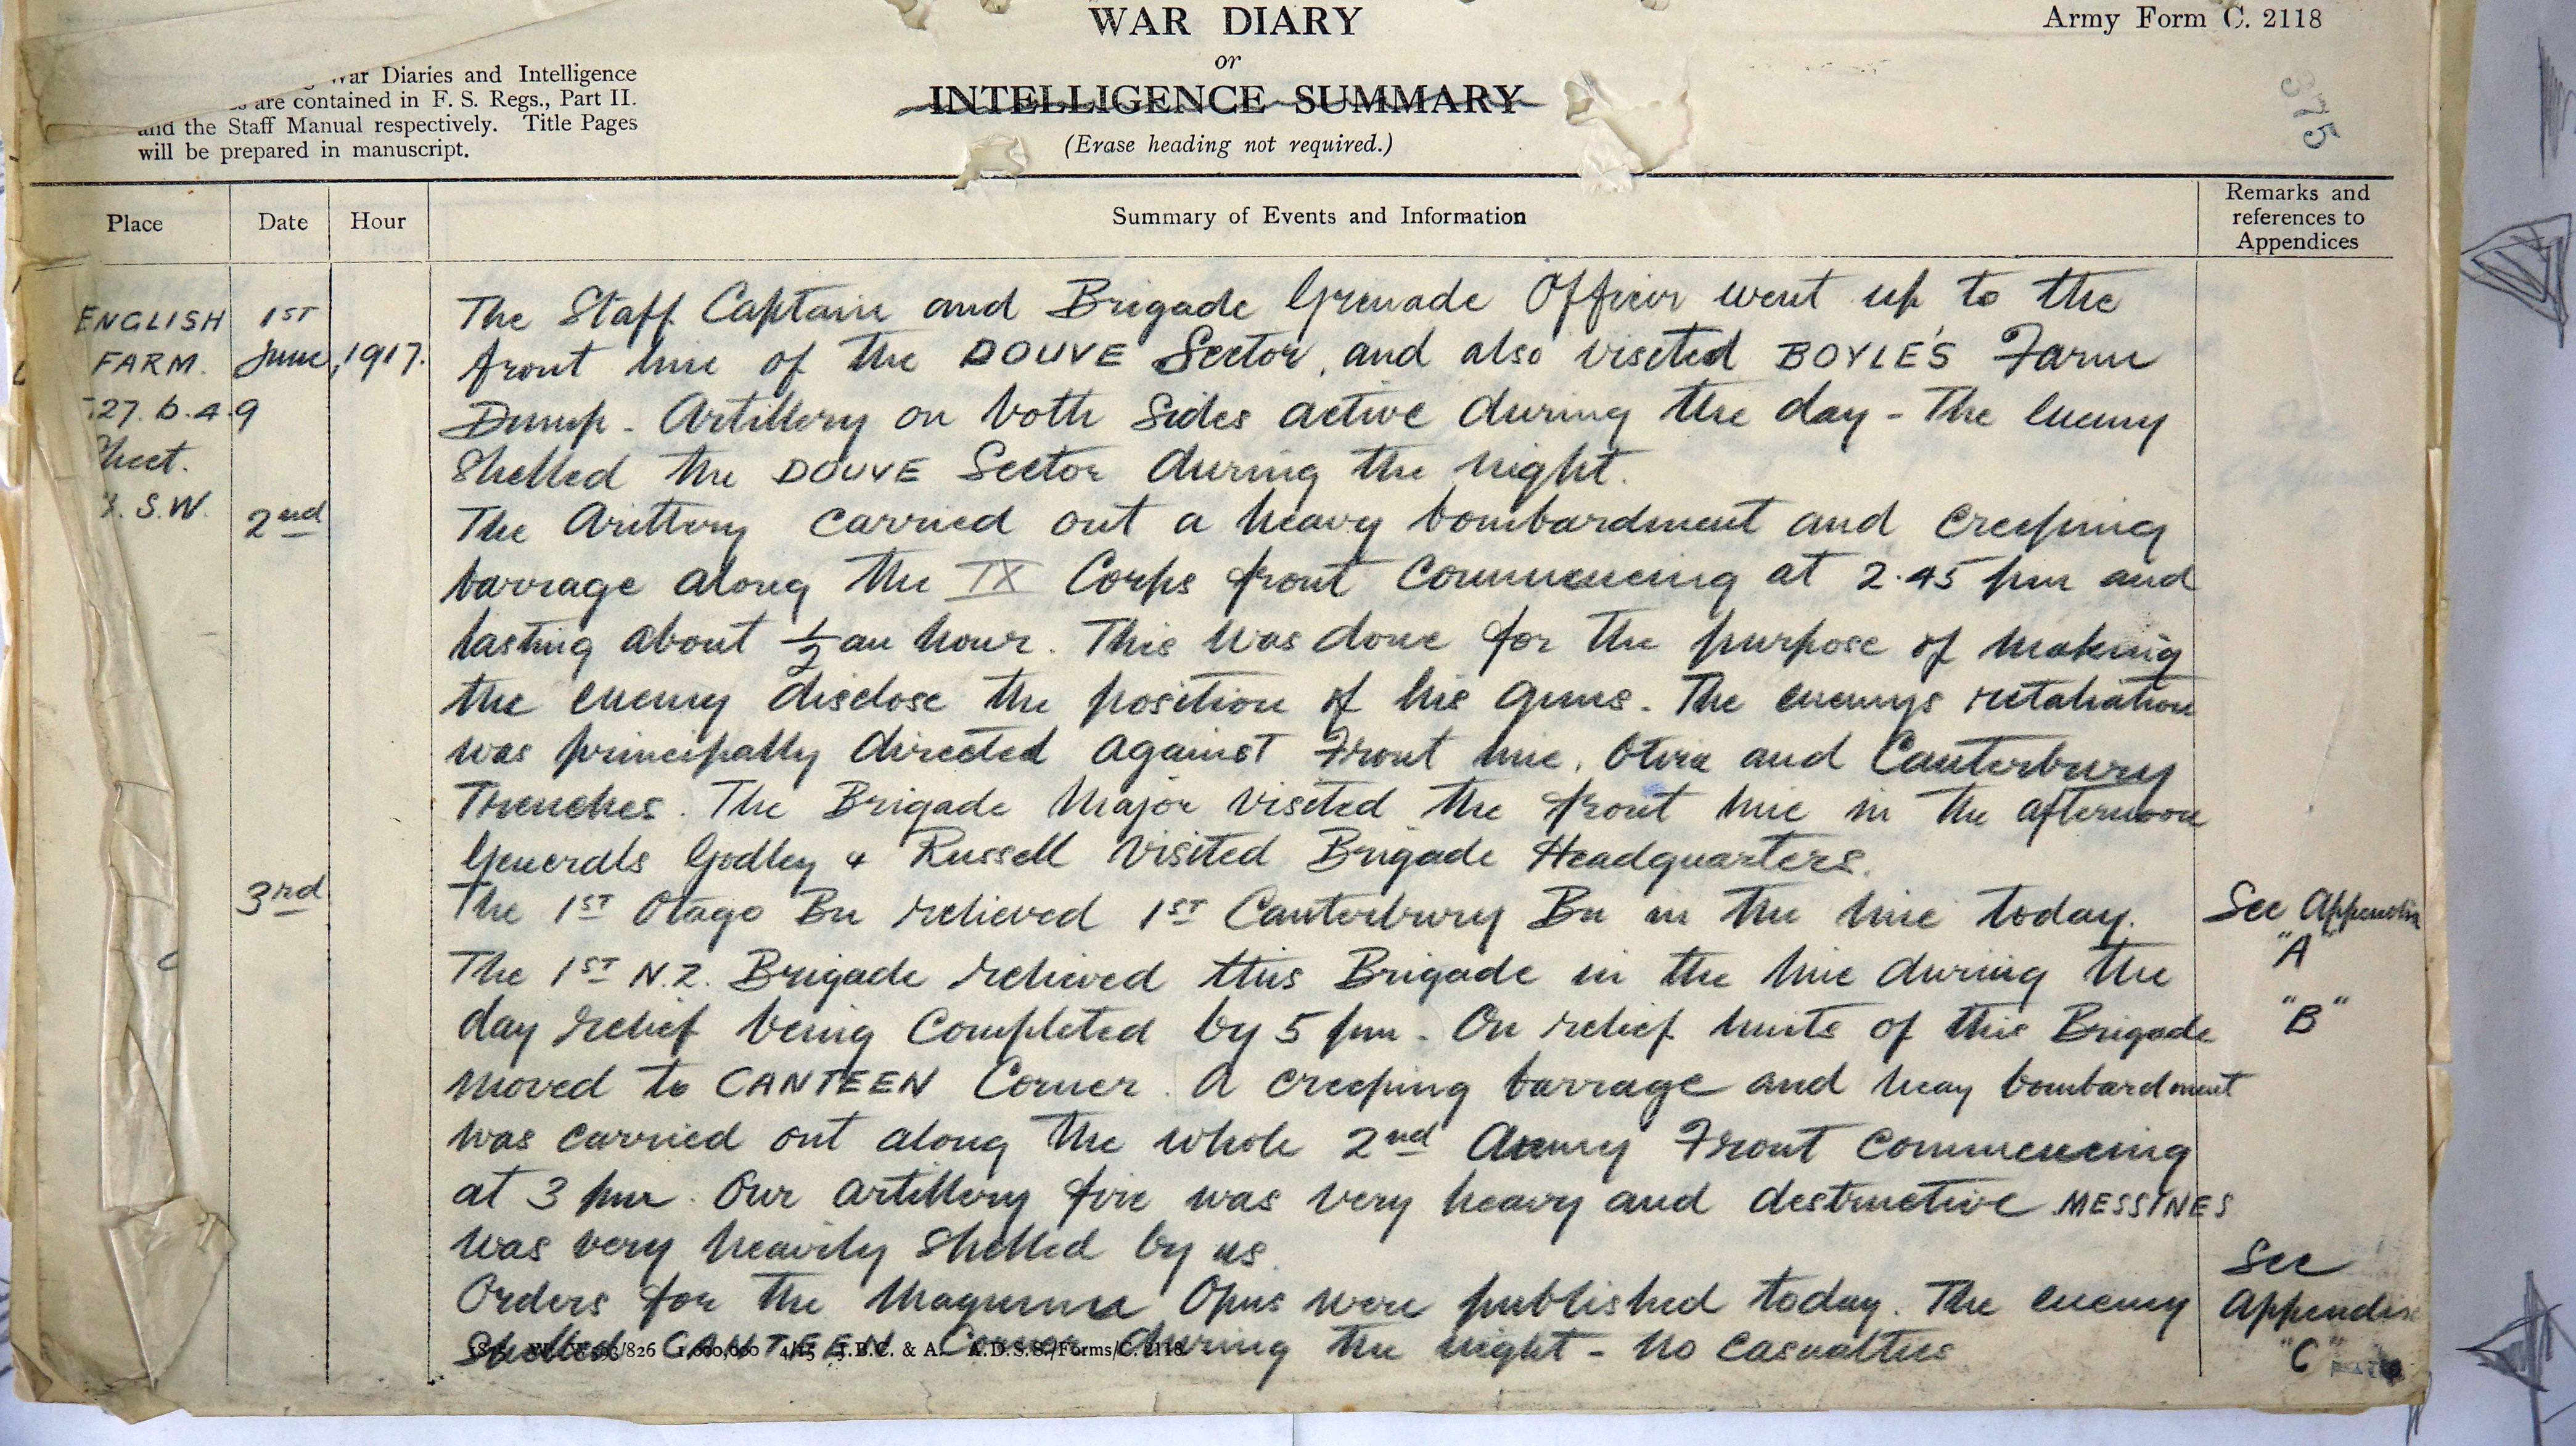 WAR DIARY
or
INTELLIGENCE SUMMARY
(Erase heading not required.)
Army Form C. 2118
War Diaries and Intelligence
are contained in F. S. Regs., Part II.
and the Staff Manual respectively. Title Pages
will be prepared in manuscript.
325
Place Date Hour Summary of Events and Information Remarks and references to Appendices
ENGLISH 1ST The Staff Captain and Brigade Grenade Officer went up to the
FARM. June, 1917. front line of the DOUVE Sector, and also visited BOYLE'S Farm
27. b. 4. 9 Dump - Artillery on both sides active during the day - The enemy
Sheet. shelled the DOUVE Sector during the night.
S.W. 2nd The Arittery carried out a heavy bombardment and creeping
barrage along the IX Corps front commencing at 2.45 pm and
lasting about 1/2 an hour. This was done for the purpose of making
the enemy disclose the position of his guns. The enemys retaliation
was principally directed against Front line, Otira and Canterbury
Trenches. The Brigade Major visited the front line in the afternoon
Generals Godley & Russell visited Brigade Headquarters.
3rd The 1ST Otago Bn relieved 1ST Canterbury Bn in the line today. See Appendix
"A"
The 1ST N.Z. Brigade relieved this Brigade in the line during the
day relief being completed by 5 pm - On relief units of this Brigade "B"
moved to CANTEEN Corner. A creeping barrage and heay bombardment
was carried out along the whole 2nd Army Front commencing
at 3 pm. Our artillery fire was very heavy and destructive MESSINES
was very heavily shelled by us.
Orders for the Magnum Opus were published today. The enemy See Appendix
shelled CANTEEN Corner during the night - No casualties "C"
/826 1,000,000 4/15 J.B.C. & A. A.D.S.S./Forms/C. 2118